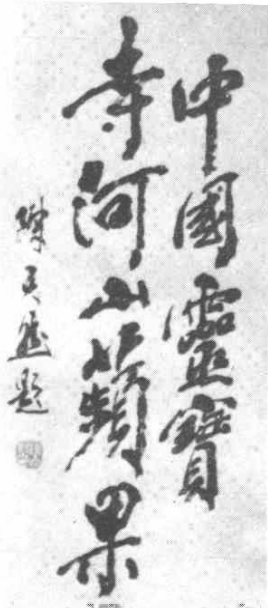 中國靈寶
寺河山蘋果
陳天然題